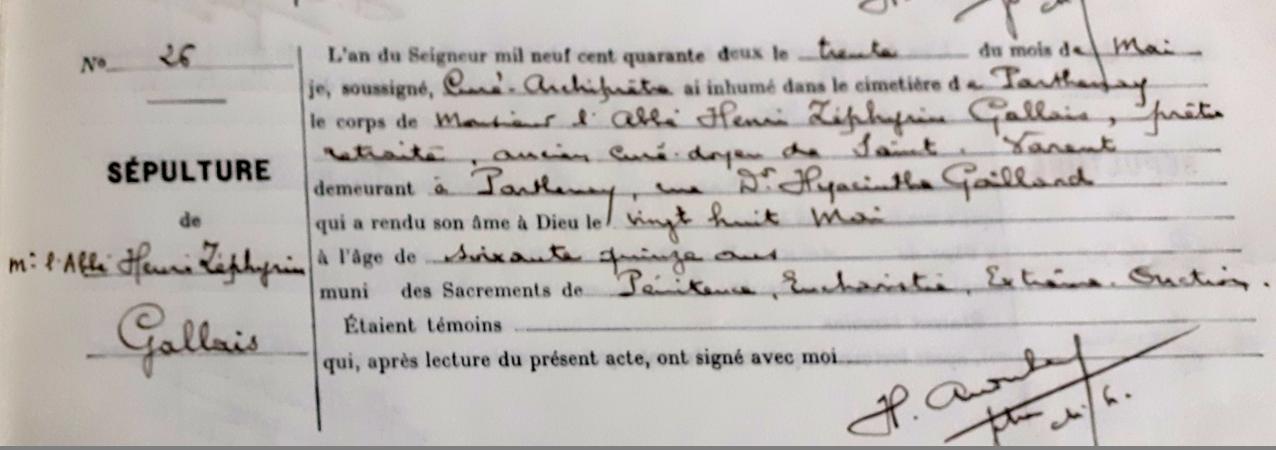 N° 26
SÉPULTURE
de
Mr l'Abbé Henri Zéphyrin
Gallais
L'an du Seigneur mil neuf cent quarante deux le trente du mois de Mai
je, soussigné, Curé-Archiprêtre ai inhumé dans le cimetière de Parthenay
le corps de Monsieur l'Abbé Henri Zéphyrin Gallais, prêtre
retraité, ancien curé-doyen de Saint-Varent
demeurant à Parthenay, rue Dr Hyacinthe Gaillard
qui a rendu son âme à Dieu le vingt huit Mai
à l'âge de soixante quinze ans
muni des Sacrements de Pénitence, Eucharistie, Extrême-Onction.
Étaient témoins
qui, après lecture du présent acte, ont signé avec moi
H.